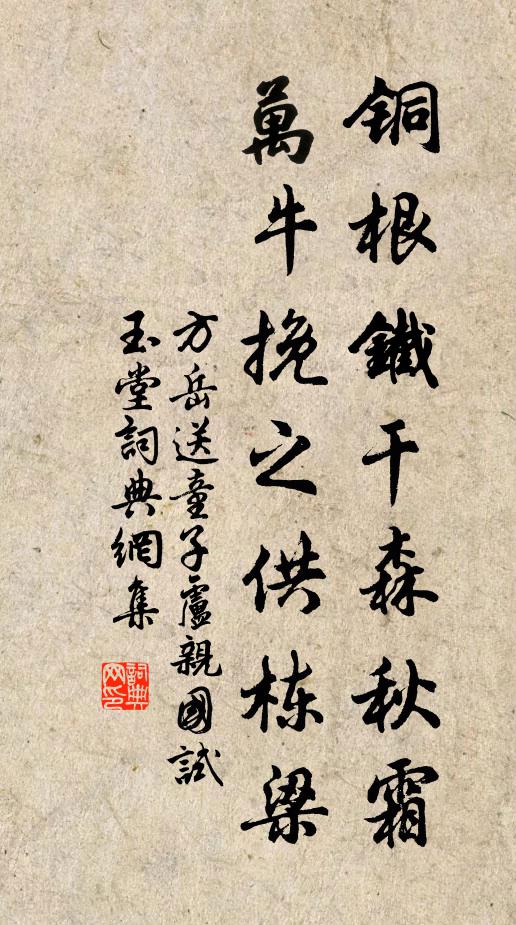 銅根鐵干森秋霜
萬牛挽之供棟梁
方岳送童子盧親國試
玉堂詞典網集
詞典网印